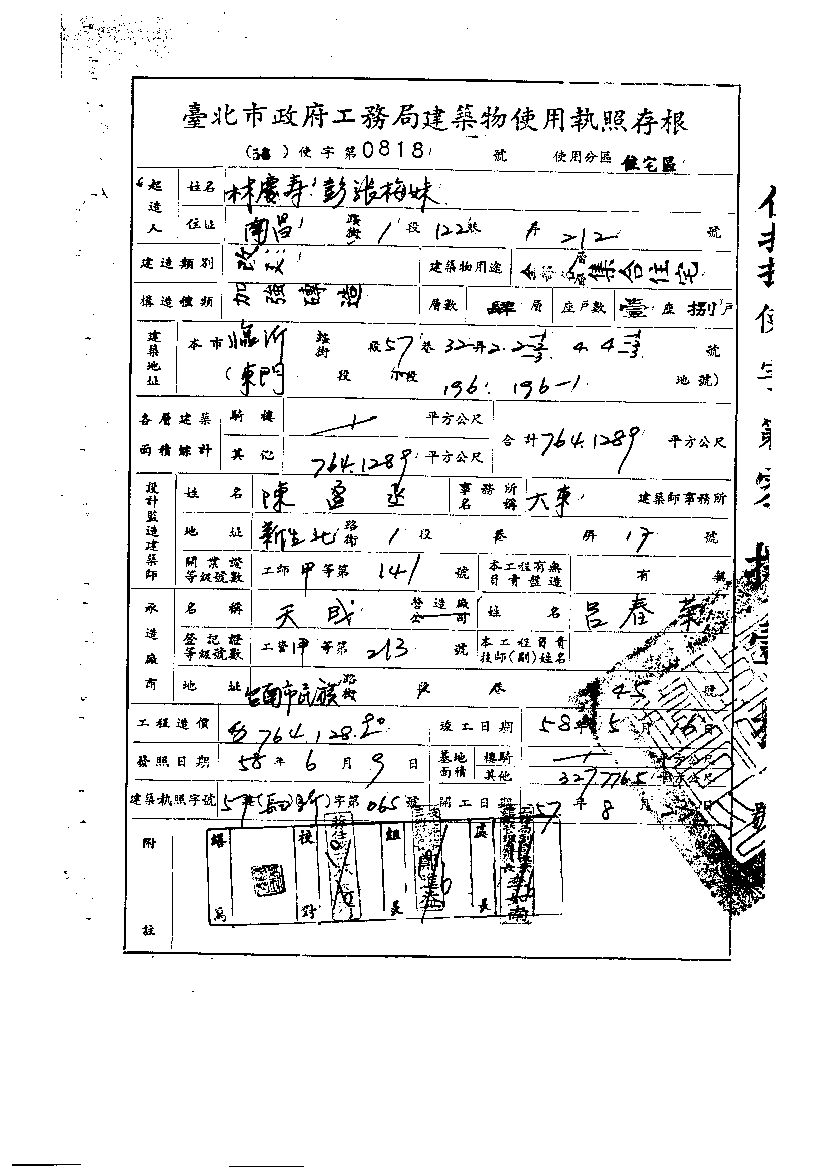 臺北市政府工務局建築物使用執照存根
(58)使字第0818號 使用分區 住宅區
起造人 姓名 林慶壽 彭張梅妹
住址 南昌 路街 1 段 122巷 弄 212 號
建造類別 改建 建築物用途 集合住宅
構造種類 加強磚造 層數 肆 層 座戶數 壹 座 捌 戶
建築地址 本市 臨沂 路街 段 57 巷 32弄 號
(東門 段 小段 196. 196-1 地號)
各層建築面積總計 騎樓 平方公尺 合計 764.1289 平方公尺
其他 764.1289 平方公尺
設計監造建築師 姓名 陳 事務所名稱 大東 建築師事務所
地址 新生北 路街 1 段 巷 弄 17 號
開業證等級號數 工師甲等第 141 號 本工程有無負責監造 有 無
承造廠商 名稱 天成 營造廠公司 姓名 呂春榮
登記證等級號數 工營甲等第 213 號 本工程負責技師(副)姓名
地址 台南市民族 路街 段 巷 45 號
工程造價 764,128.90 竣工日期 58年5月16日
發照日期 58年6月9日 基地面積 騎樓 平方公尺
其他 327.7765 平方公尺
建築執照字號 57 字第065號 開工日期 57年8月 日
附註 繕寫 校對 組長 處長